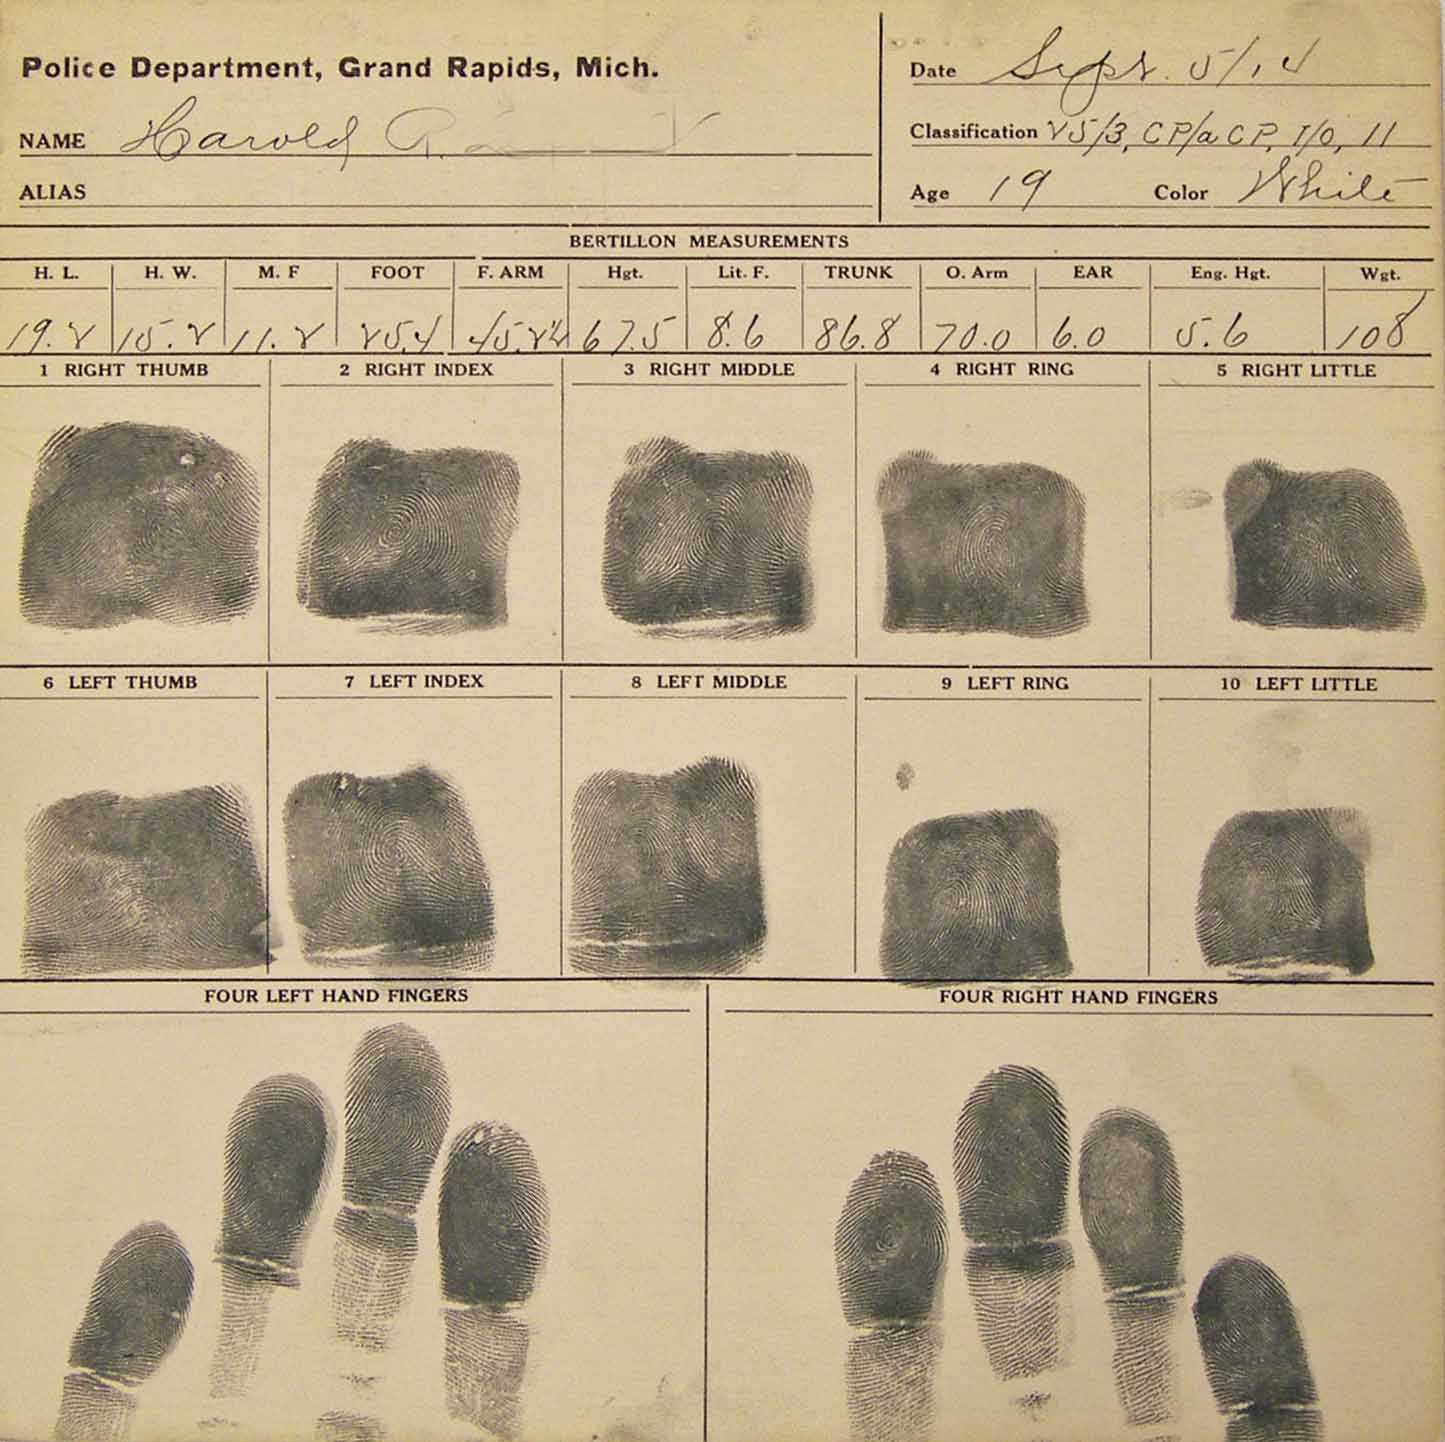 Police Department, Grand Rapids, Mich.
NAME Harold
ALIAS
Date Sept. 5/14
Classification
Age 19 Color White
BERTILLON MEASUREMENTS
H. L. H. W. M. F FOOT F. ARM Hgt. Lit. F. TRUNK O. Arm EAR Eng. Hgt. Wgt.
19.2 15.2 11.2 25.4 67.5 8.6 86.8 70.0 6.0 5.6 108
1 RIGHT THUMB 2 RIGHT INDEX 3 RIGHT MIDDLE 4 RIGHT RING 5 RIGHT LITTLE
6 LEFT THUMB 7 LEFT INDEX 8 LEFT MIDDLE 9 LEFT RING 10 LEFT LITTLE
FOUR LEFT HAND FINGERS FOUR RIGHT HAND FINGERS